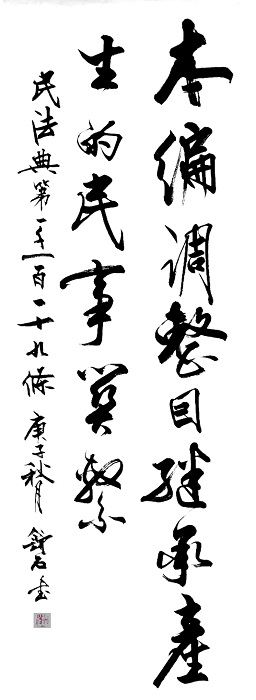 本编调整因继承產
生的民事關繫
民法典第一千一百一十九條 庚子秋月 石书